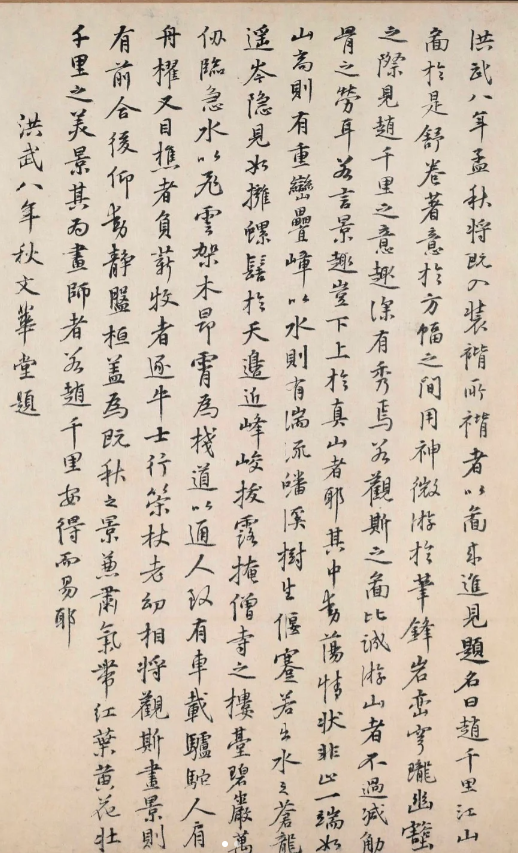 洪武八年孟秋將既入裝褙所褙者以圖來進見題名曰趙千里江山
圖於是舒卷著意於方幅之間用神微游於筆鋒岩巒穹隴幽壑
之際見趙千里之意趣深有秀焉若觀斯之圖比誠游山者不過減觔
骨之勞耳若言景趣豈下上於真山者耶其中動蕩情狀非止一端如
山高則有重巒疊嶂以水則有湍流蟠溪樹生偃蹇若出水之蒼龍
遥岑隱見如擁螺髻於天邊近峰峻拔露掩僧寺之樓臺碧巖萬
仞臨急水以飛雲架木昂霄為棧道以通人致有車載驢馱人肩
舟櫂又目樵者負薪牧者逐牛士行策杖老幼相將觀斯畫景則
有前合後仰動靜盤桓盖為既秋之景兼肅氣帶紅葉黄花壯
千里之美景其為畫師者若趙千里安得而易耶
洪武八年秋文華堂題